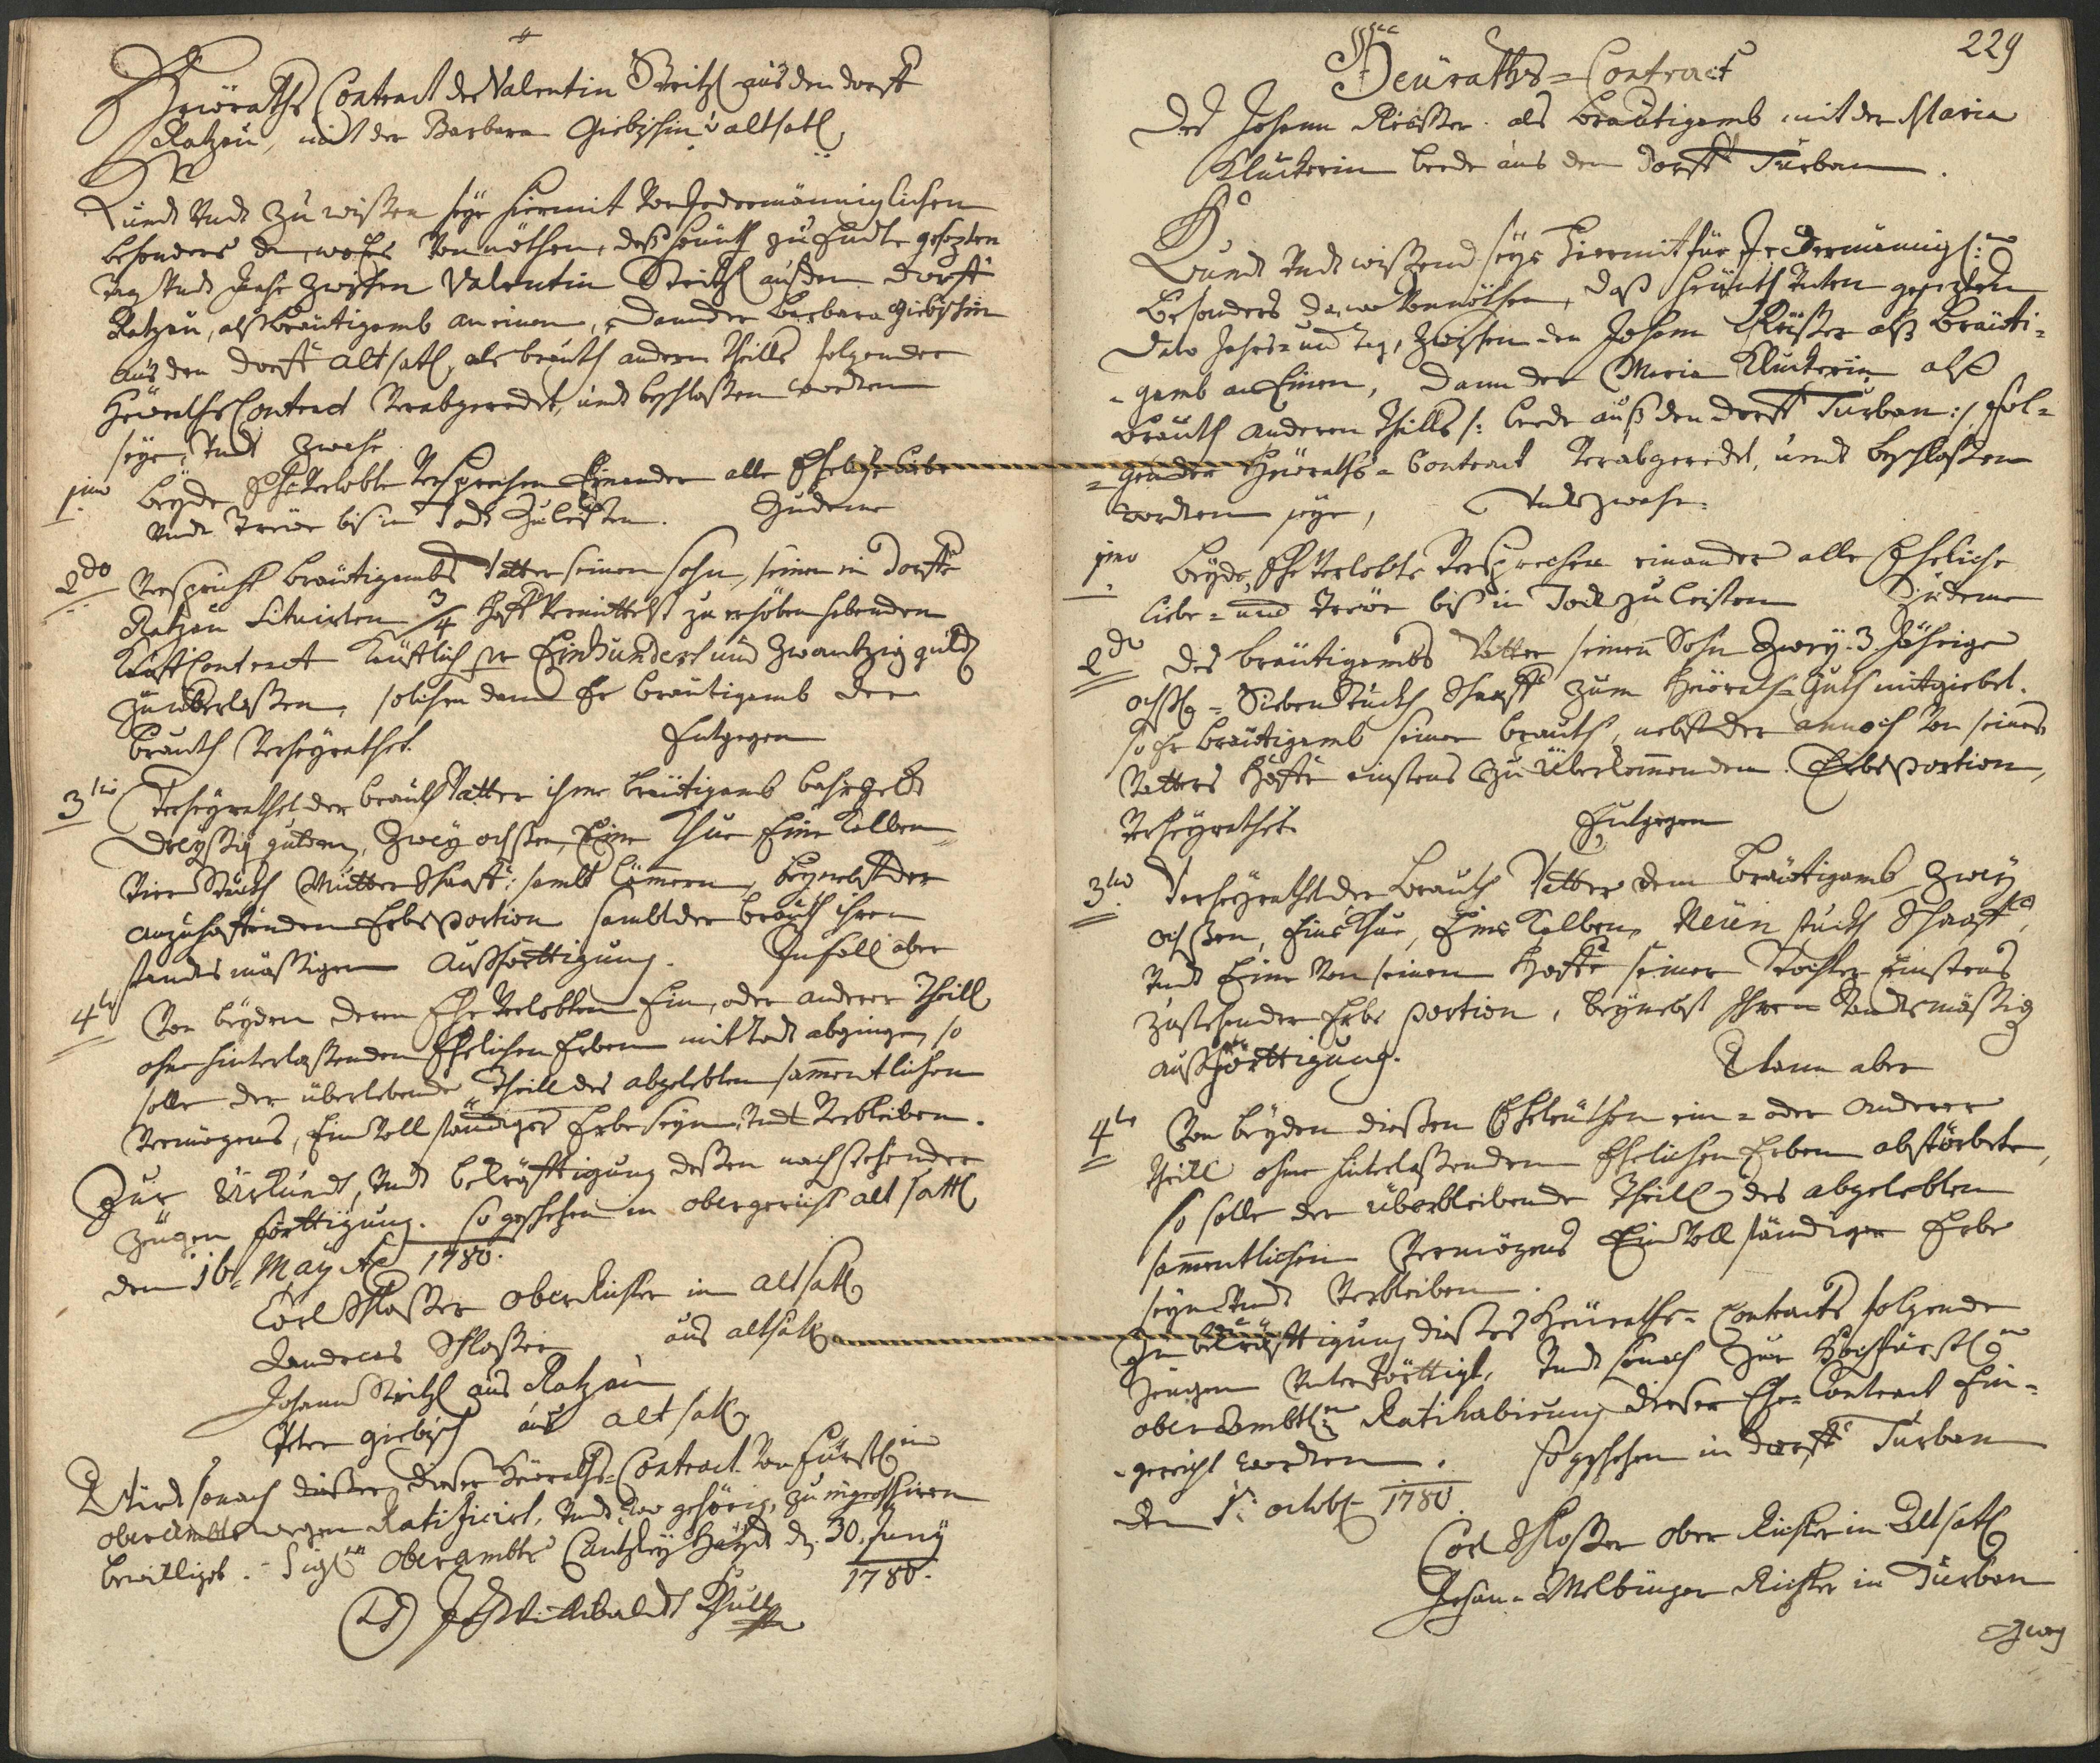 Heüraths Contract des Valentin Streitzl aus den dorff
Ratzau, mit der Barbara Giebischin v: altsatl
Kundt undt zu wißen seye hiermit von Jedermänniglichen
besonders da, wo es von nöthen, daß heünth zu Endte gesezten
tag undt Jahr zwischen Valentin Streitzl aus dem dorff
Ratzau, alß breütigamb an einem, dann der barbara giebischin
aus den dorff altsatl, als brauth andern theills folgender
Heüraths Contract verabgeredet, undt beschloßen worden
seye, undt zwahr
1mo beyde Ehe Verlobte versprechen Einander alle Eheliche liebe
undt treüe bis in Todt zu leisten. Zudeme
2do verspricht breütigambs Vatter seinen sohn, seinen in dorffe
Ratzau situirten 3/4 hoff vermittelst zu erhöben habenden
Kauff Contract Keüfflich pr Einhundert und zwantzig guld
zu überlaßen, solichen dann Er breütigamb der
brauth verheyrathet. Entgegen
3tio Verheyrathet der brauth Vatter ihme breütigamb bahr geldt
dreyßig gulden, zwey ochsen, Eine Khue, Eine Kalben
vier Stückh Mutter Schaaff: sambt Lämmern, beynebst der
anzuhoffenden Erbsportion sambt der brauth ihren
standtsmäßigen außförttigung. Zufall aber
4to Von beyden denen Ehe Verlobten Ein, oder anderer theill
ohne hinterlaßenden Ehelichen Erben mit todt abginge, so
solle der überlebende theill des abgelebten sammentlichen
vermögens, Ein vollständiger Erbe seyn, undt verbleiben.
Zur Uhrkundt, undt bekräfftigung deßen nachstehender
zeügen förttigung. So geschehen in obergericht alt sattl
den 16. May Ao 1780.
Carl Schloßer oberrichter in altsatl
Andreas Schloßer aus altsatl
Johann Streitzl aus Ratzau
Peter giebisch aus alt satl
Wirdt sonach dießer Heüraths-Contract von Fürstl:n
oberambts wegen Ratificirt, undt wo gehörig, zu ingrossiren
bewilliget. Sigl:m oberambts Cantzley Hayd d. 30. Juny
1780.
(LS)
229
Heüraths-Contract
Des Johann Rießter als Breütigamb mit der Maria
Kluckterin beede aus dem Dorff Turban.
Kundt undt wißend seye hiermit für Jedermännigl:n
besonders da, wo vonnöthen, daß heünth unten gesezten
dato Jahrs- und tag, zwischen den Johann Rießter alß breüti-
-gamb an Einen, dann der Maria Kluckterin alß
brauth anderen theills /: beede auß den dorff Turban :/ fol-
-gender Heüraths-Contract verabgeredet, undt beschloßen
worden seye, Undt zwahr
1mo beyde Ehe Verlobte versprechen einander alle Eheliche
liebe- und treüe biß in Todt zu leisten Zudeme
2do des breütigambs Vatter seinen Sohn zwey 3 Jährige
ochßl- Sieben Stückh Schaaff zum heüraths-Guth mitgiebet.
so Er breütigamb seiner brauth, nebst der annoch von seines
Vatters höffe einstens zu überkommenden Erbsportion,
verheyrathet. Entgegen
3tio Verheyrathet der brauth Vatter dem breütigamb zwey
ochßen, Eine Khue, Eine Kalben, Neün stückh Schaaff,
undt Eine von seinen hoffe seiner Tochter Einstens
zustehender Erbs portion, beynebst Ihren standtsmäßig
außförttigung. Wann aber
4to Von beyden dießen Eheleüthen ein- oder Anderer
theill ohne hinterlaßenden Ehelichen Erben abstörbete,
so solle der überbleibende theill des abgelebten
sammentlichen vermögens Ein vollständiger Erbe
seyn undt verbleiben.
Zu bekräfftigung dießes Heüraths-Contracts folgende
Zeügen unterförttigt, undt sonach zur Hochfürstl:n
oberambtl:n Ratihabirung dieser Ehe-Contract Ein-
-gereicht worden. So geschehen in dorff Turban
den 1. octob: 1780.
Carl Schloßer ober Richter in Altsatl
Johann Melbinger Richter in Turban
Zweg